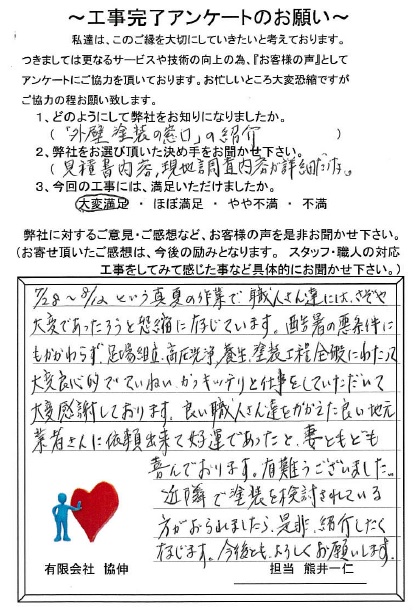 ～工事完了アンケートのお願い～
私達は、このご縁を大切にしていきたいと考えております。
つきましては更なるサービスや技術の向上の為、『お客様の声』として
アンケートにご協力を頂いております。お忙しいところ大変恐縮ですが
ご協力の程お願い致します。
1、どのようにして弊社をお知りになりましたか。
（「外壁塗装の窓口」の紹介　）
2、弊社をお選び頂いた決め手をお聞かせ下さい。
（見積書内容,現地調査内容が詳細だった。）
3、今回の工事には、満足いただけましたか。
大変満足 ・ ほぼ満足 ・ やや不満 ・ 不満
弊社に対するご意見・ご感想など、お客様の声を是非お聞かせ下さい。
（お寄せ頂いたご感想は、今後の励みとなります。 スタッフ・職人の対応
工事をしてみて感じた事など具体的にお聞かせ下さい。）
7/28～8/12 という真夏の作業で職人さん達には、さぞや
大変であったろうと恐縮に存じています。酷暑の悪条件に
もかかわらず、足場組立,高圧洗浄,養生,塗装工程全般にわたって
大変良心的でていねい、かつキッチリと仕事をしていただいて
大変感謝しております。良い職人さん達をかかえた良い地元
業者さんに依頼出来て好運であったと、妻ともども
喜んでおります。有難うございました。
近隣で塗装を検討されている
方がおられましたら、是非、紹介したく
存じます。今後とも、よろしくお願いします。
有限会社 協伸
担当 熊井一仁